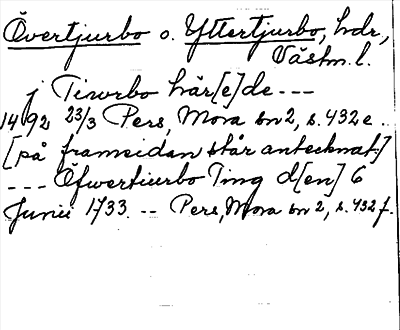 Övertjurbo o. Yttertjurbo, hdr,
Västm. l.
j Tiwrbo här[e]de ---
1492 23/3 Pers, Mora bn 2, s. 432 e.
[på framsidan står antecknat:]
--- Öfwertiurbo Ting d[en] 6
Junii 1733. -- Pers, Mora bn 2, s. 432 f.